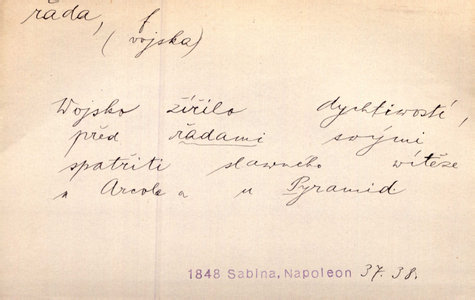 řáda, f
(vojska)
Wojsko žířilo dychtiwostí,
před řadami swými
spatřiti slawného wítěze
u Arcole a u Pyramid.
1848 Sabina, Napoleon 37. 38.